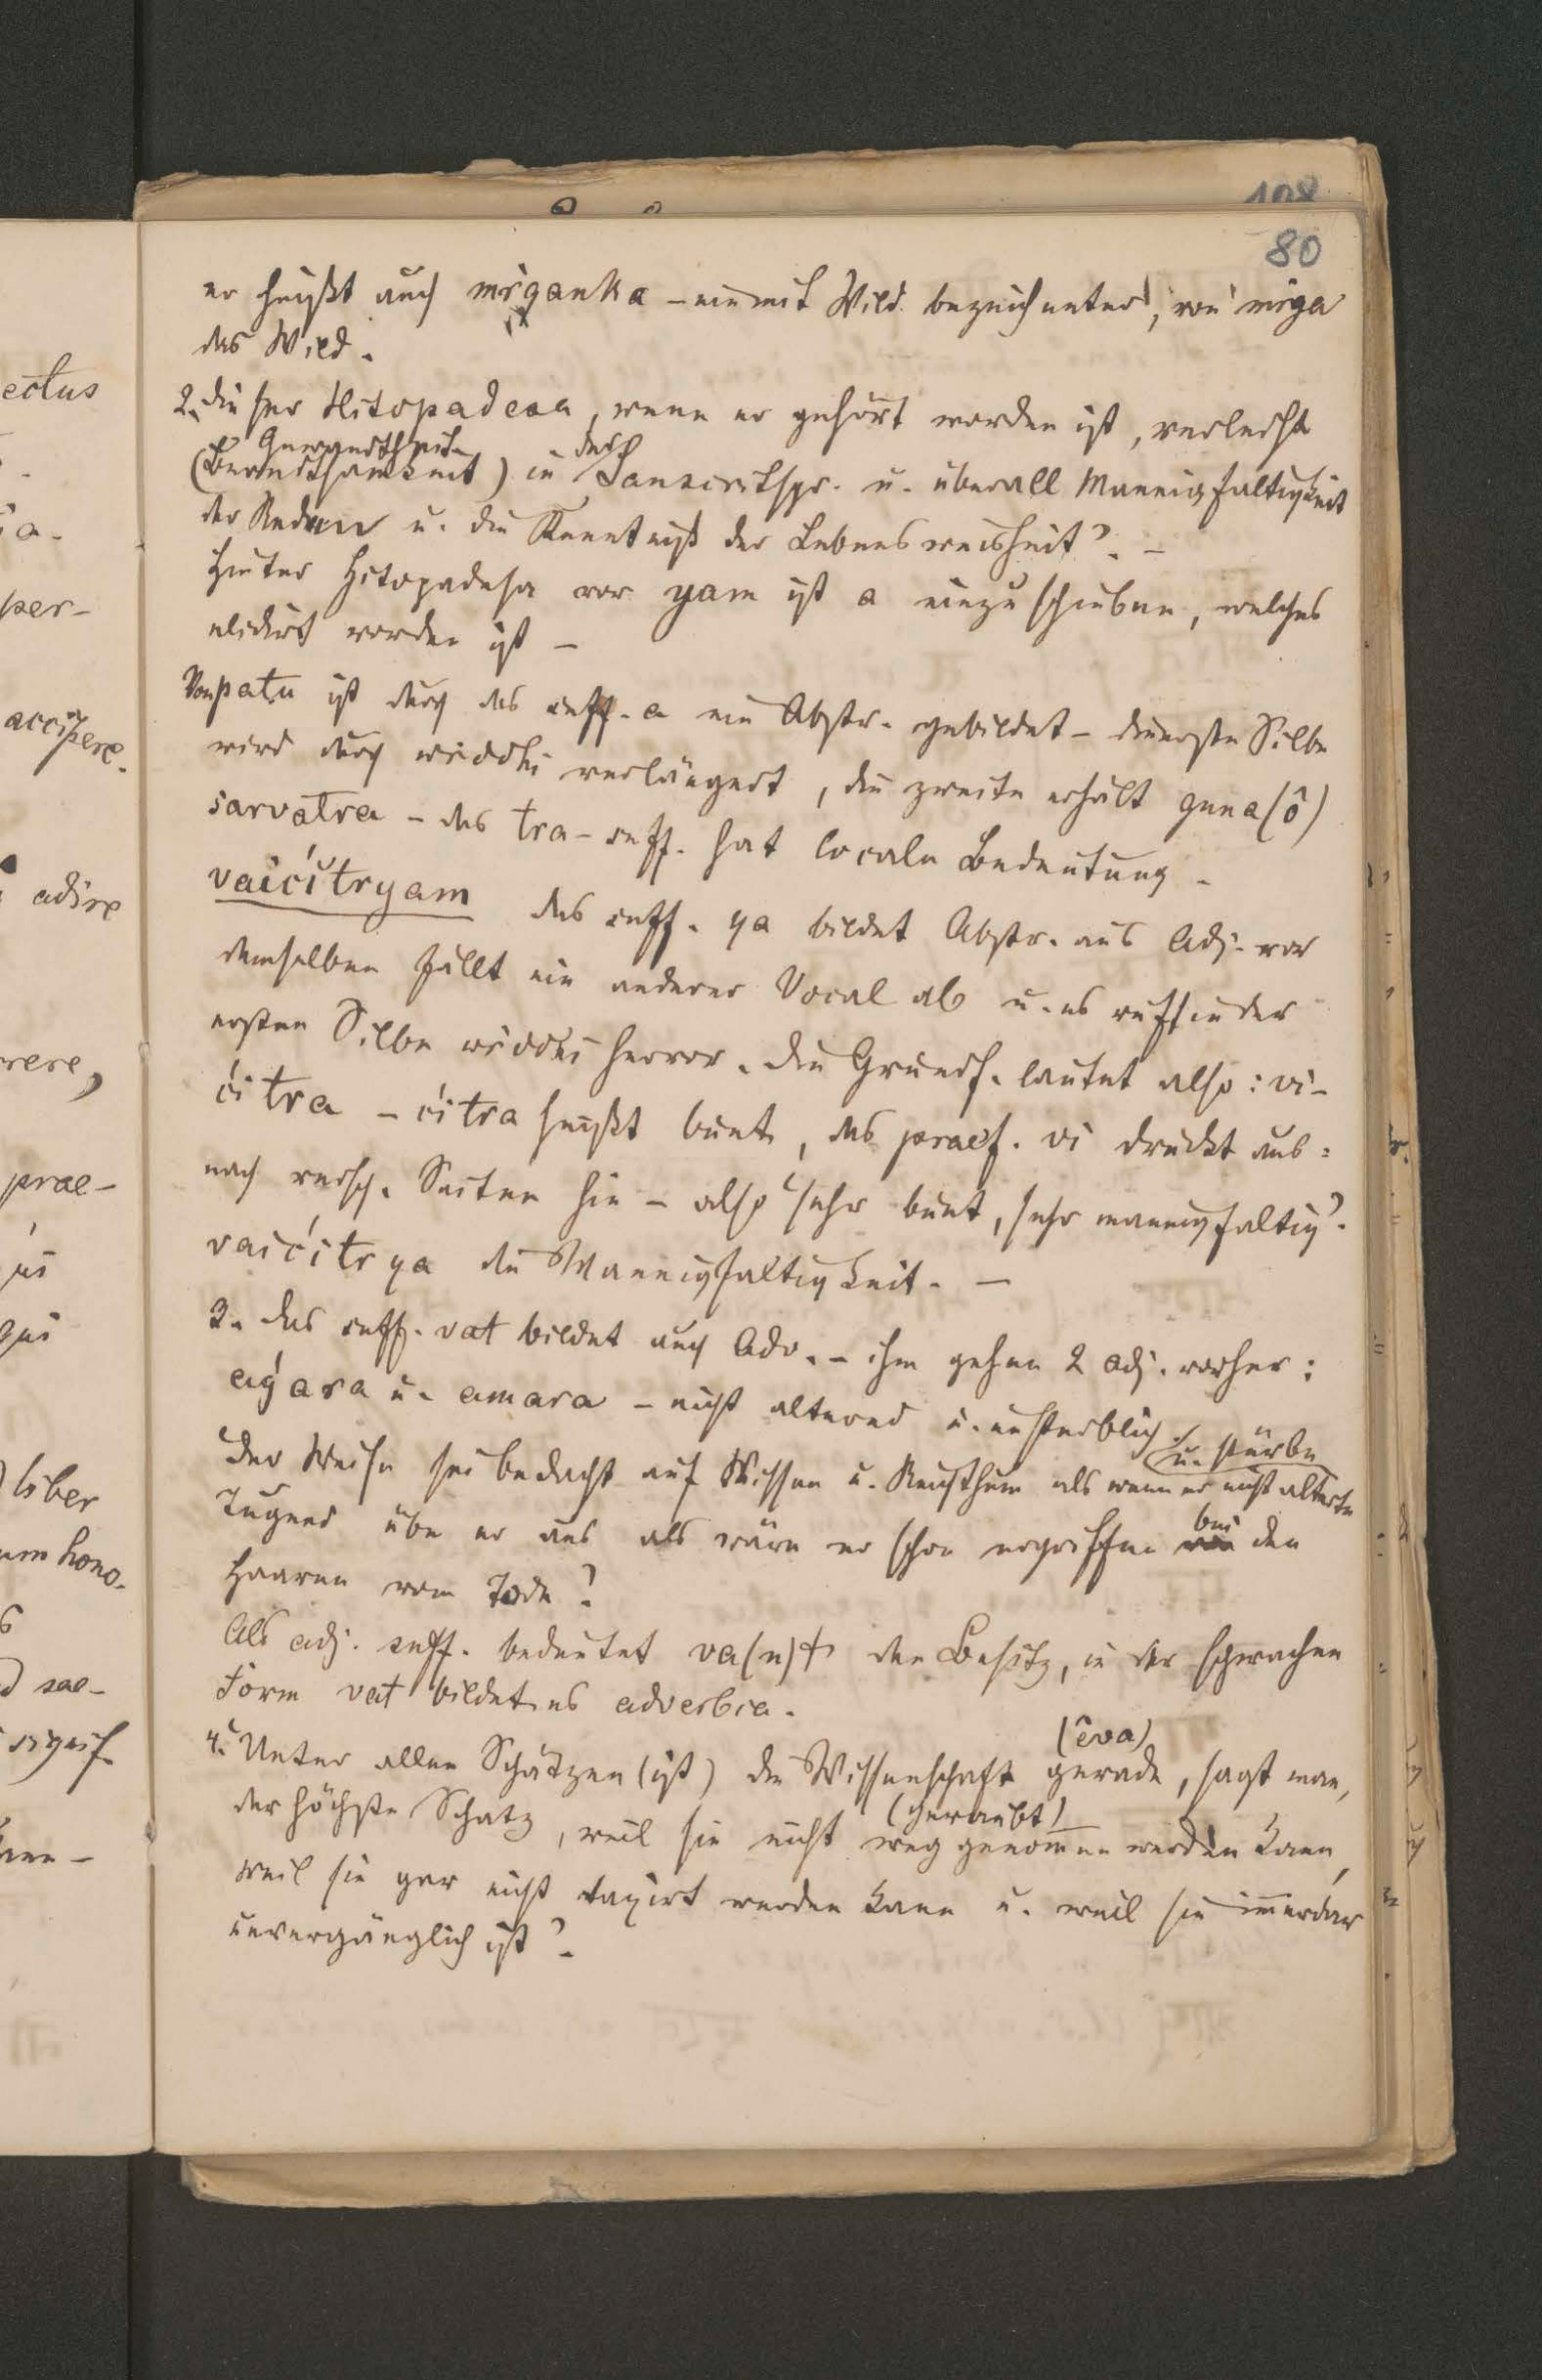 108
80
er heißt auch mṛganka – ein mit Wild bezeichneter, von mṛga
das Wild.
2. dieser Hitopadesa, wenn er gehört worden ist, verleiht
Gewandtheit der
(Beredtsamkeit) in Sanscritspr. u. überall Mannigfaltigkeit
der Reden u. die Kenntniß der Lebensweisheit". –
Hinter Hitopadesa vor yam ist a einzuschieben, welches
elidirt worden ist –
Von patu ist durch das suff. a ein Abstr. gebildet – die erste Silbe
wird durch wriddhi verlängert, die zweite erhält guna (ô)
sarvatra – das tra-suff. hat locale Bedeutung –
vaićitryam das suff. ya bildet Abstr. aus Adj. vor
demselben fällt ein anderer Vocal ab u. es ruft in der
ersten Silbe wriddhi hervor. Die Grundf. lautet also: vi-
ćitra – ćitra heißt bunt, das praef. vi drückt aus:
nach versch. Seiten hin – also "sehr bunt, sehr mannigfaltig".
vaićitrya die Mannigfaltigkeit. –
3. das suff. vat bildet auch Adv. – ihm gehen 2 adj. vorher:
aǵara u. amara – nicht alternd u. unsterblich.
u. stürbe
"Der Weise sei bedacht auf Wissen u. Reichthum als wenn er nicht alterte
bei
Tugend übe er aus als wäre er schon ergriffen den
Haaren vom Tode"
Als adj. suff. bedeutet va(n)t den Besitz, in der schwachen
Form vat bildet es adverbia.
(êva)
4. "Unter allen Schätzen (ist) die Wissenschaft gerade, sagt man,
(geraubt)
der höchste Schatz, weil sie nicht weg genommen werden kann,
weil sie gar nicht taxirt werden kann u. weil sie immerdar
unvergänglich ist".
ectus
ia-
per-
accipere.
adire
rere,
prae-
us
qui
liber
um hono-
sae-
signif.